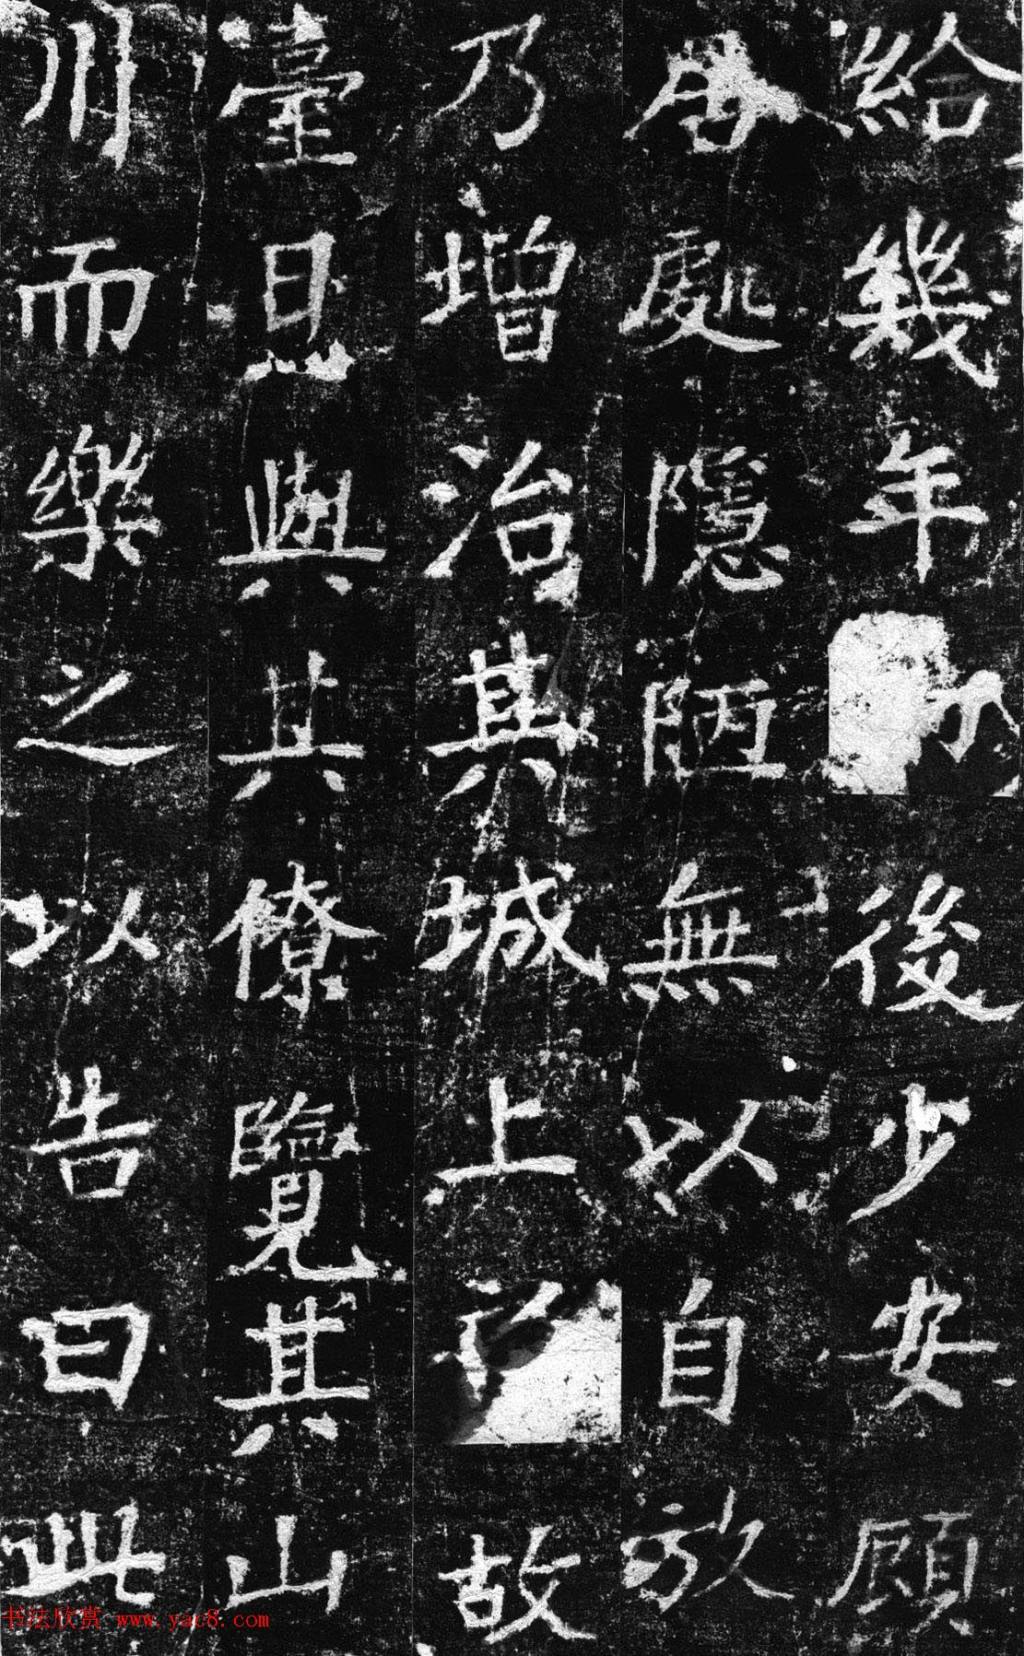 給幾年 後少安顧
居處隱陋無以自放
乃增治其城上 故
臺息與其僚覽其山
川而樂之以告曰此
书法欣赏 www.yac8.com